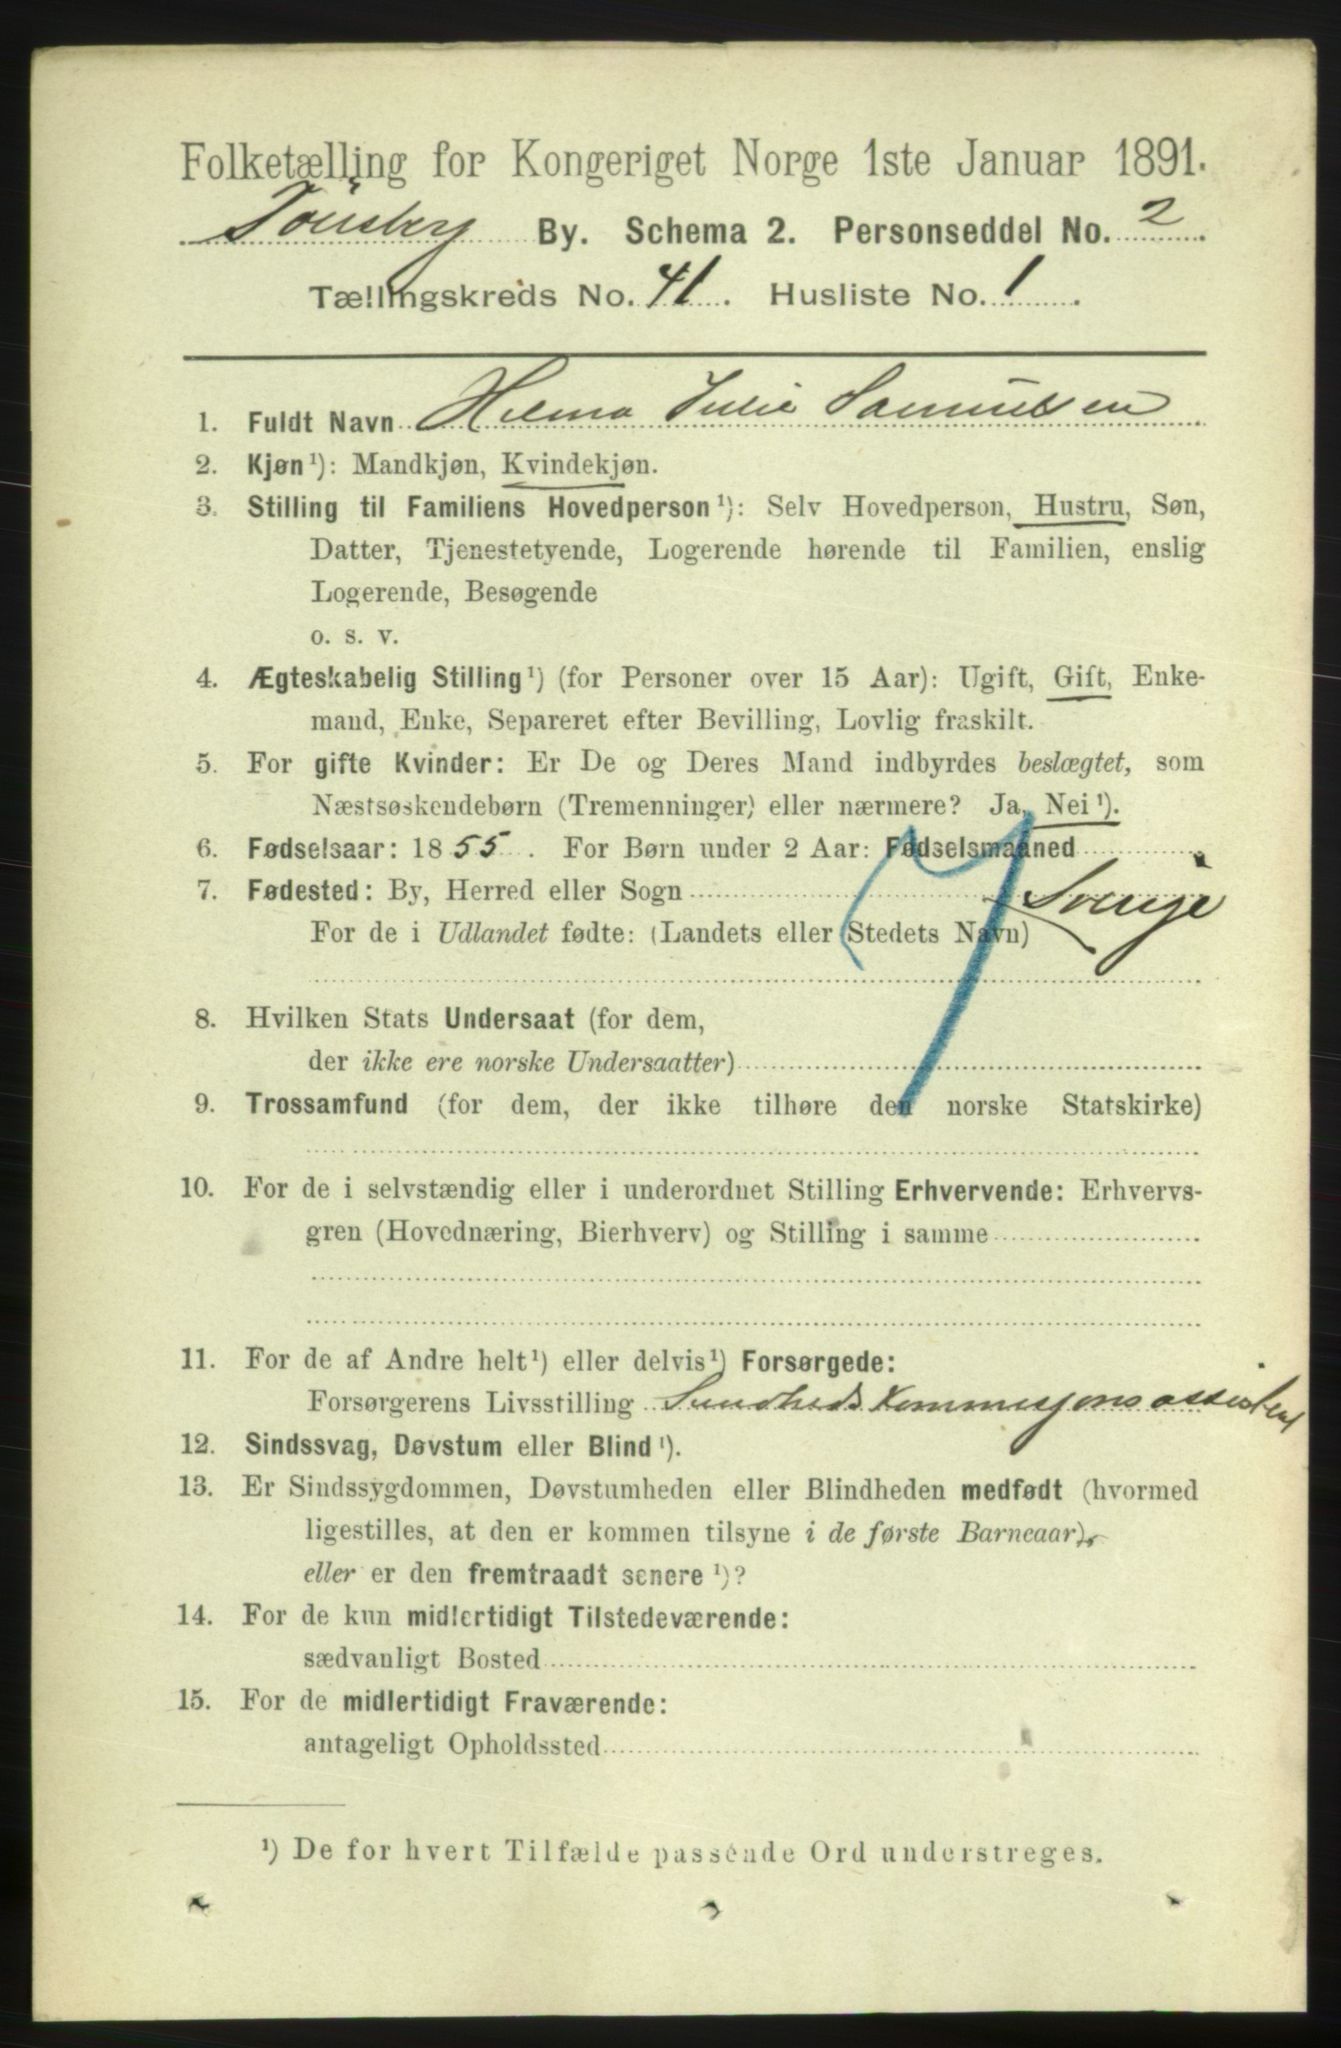 Folketælling for Kongeriget Norge 1ste Januar 1891.
Tönsberg By. Schema 2. Personseddel No. 2
Tællingskreds No. 41. Husliste No. 1.
1. Fuldt Navn Hilma Julie Samuelsen
2. Kjøn¹): Mandkjøn, Kvindekjøn.
3. Stilling til Familiens Hovedperson¹): Selv Hovedperson, Hustru, Søn,
Datter, Tjenestetyende, Logerende hørende til Familien, enslig
Logerende, Besøgende
o. s. v.
4. Ægteskabelig Stilling¹) (for Personer over 15 Aar): Ugift, Gift, Enke-
mand, Enke, Separeret efter Bevilling, Lovlig fraskilt.
5. For gifte Kvinder: Er De og Deres Mand indbyrdes beslægtet, som
Næstsøskendebørn (Tremenninger) eller nærmere? Ja, Nei¹).
6. Fødselsaar: 1855. For Børn under 2 Aar: Fødselsmaaned
7. Fødested: By, Herred eller Sogn Sverige
For de i Udlandet fødte: (Landets eller Stedets Navn)
8. Hvilken Stats Undersaat (for dem,
der ikke ere norske Undersaatter)
9. Trossamfund (for dem, der ikke tilhøre den norske Statskirke)
10. For de i selvstændig eller i underordnet Stilling Erhvervende: Erhvervs-
gren (Hovednæring, Bierhverv) og Stilling i samme
11. For de af Andre helt¹) eller delvis¹) Forsørgede:
Forsørgerens Livsstilling Sundheds Kommisjons assistent
12. Sindssvag, Døvstum eller Blind¹).
13. Er Sindssygdommen, Døvstumheden eller Blindheden medfødt (hvormed
ligestilles, at den er kommen tilsyne i de første Barneaar),
eller er den fremtraadt senere¹)?
14. For de kun midlertidigt Tilstedeværende:
sædvanligt Bosted
15. For de midlertidigt Fraværende:
antageligt Opholdssted
¹) De for hvert Tilfælde passende Ord understreges.